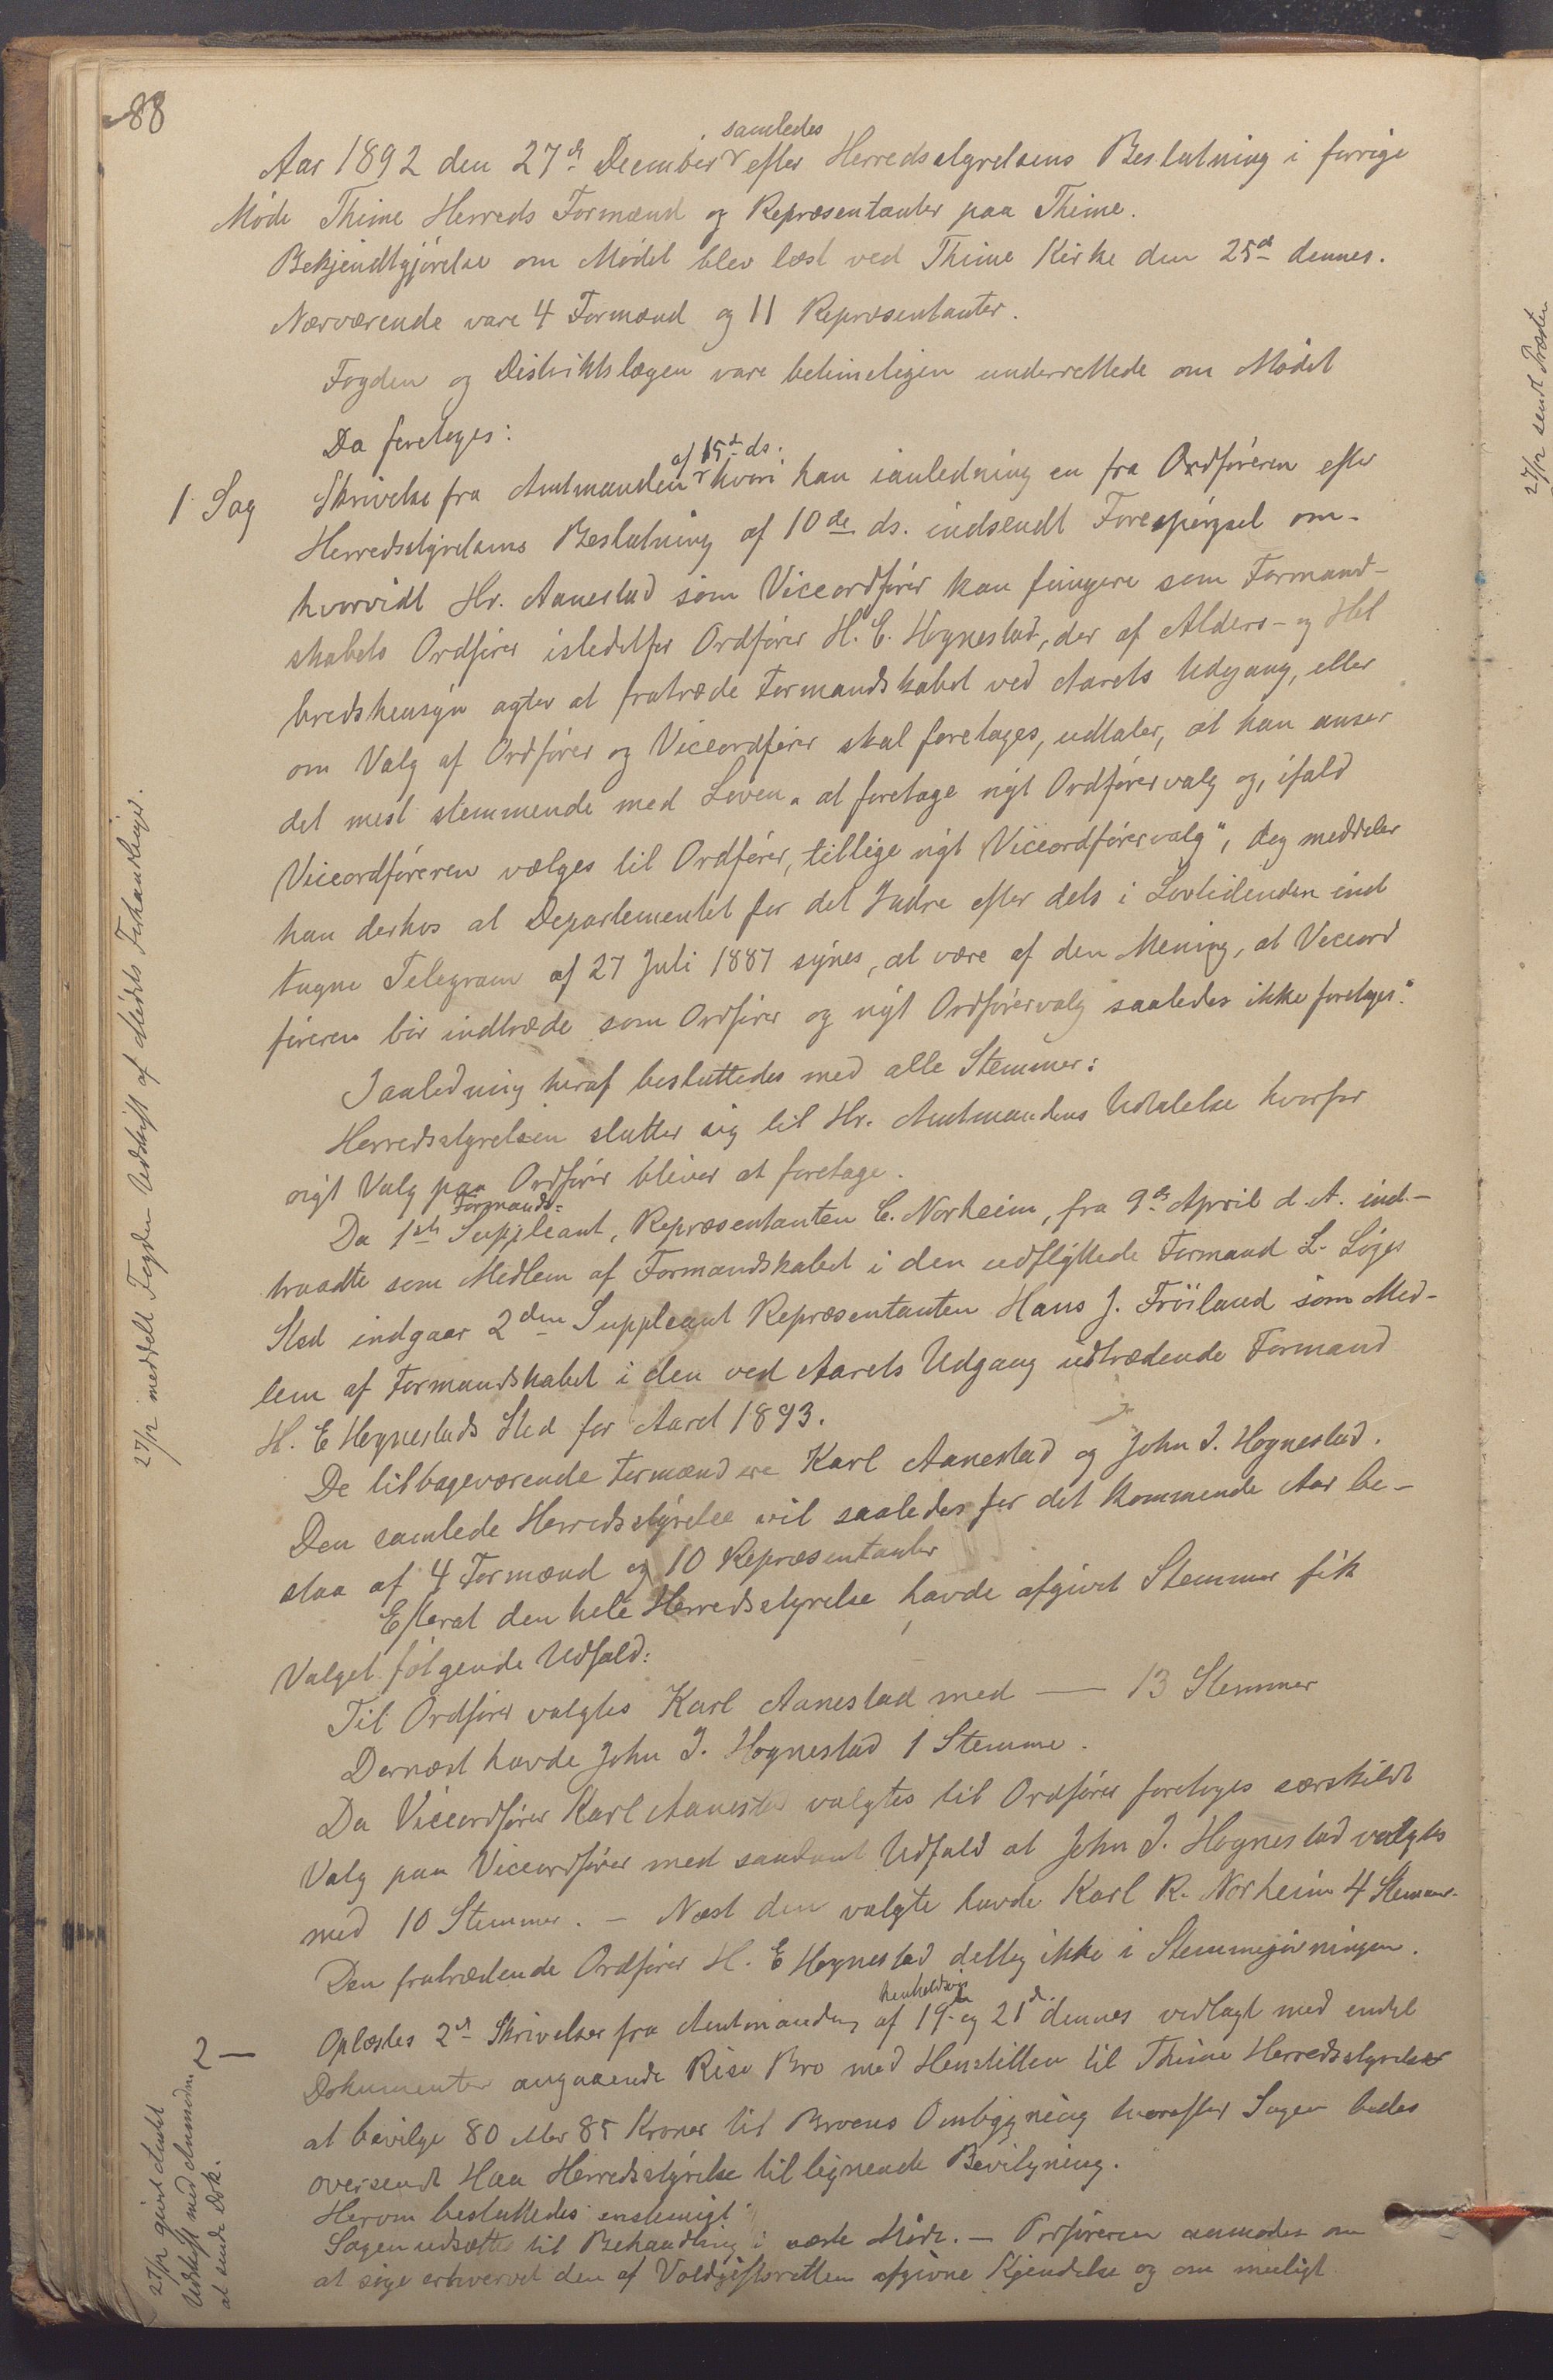 88
samledes
Aar 1892 den 27de December efter Herredsstyrelsens Beslutning i forrige
Møde Thime Herreds Formænd og Repræsentanter paa Thime.
Bekjendtgjørelse om Mødet blev læst ved Thime Kirke den 25de dennes.
Nærværende vare 4 Formænd og 11 Repræsentanter.
Fogden og Distriktslægen vare betimeligen underrettede om Mødet
Da foretoges:
af 15de ds.
1 Sag Skrivelse fra Amtmanden hvori han ianledning en fra Ordføreren efter
Herredsstyrelsens Beslutning af 10de ds. indsendt Forespørgsel om-
hvorvidt Hr. Aanestad som Viceordfører kan fungere som Formand-
skabets Ordfører istedetfor Ordfører H. E. Hognestad, der af Alders- og Hel
bredshensyn agter at fratræde Formandskabet ved Aarets Udgang, eller
om Valg af Ordfører og Viceordfører skal foretages, udtaler, at han anser
det mest stemmende med Loven „at foretage nyt Ordførervalg og, ifald
Viceordføreren vælges til Ordfører, tillige nyt Viceordførervalg“, dog meddeler
han derhos at Departementet for det Indre efter dets i Lovtidenden ind
tagne Telegram af 27 Juli 1887 synes, at være af den Mening, at Viceord
føreren bør indtræde som Ordfører og nyt Ordførervalg saaledes ikke foretages“.
Ianledning heraf besluttedes med alle Stemmer:
Herredsstyrelsen slutter sig til Hr. Amtmandens Udtalelse hvorfor
nyt Valg paa Ordfører bliver at foretage.
Formands=
Da 1ste Suppleant, Repræsentanten C. Norheim, fra 9de April d. A. ind-
traadte som Medlem af Formandskabet i den udflyttede Formand L. Løges
Sted indgaar 2den Suppleant Repræsentanten Hans J. Frøiland som Med-
lem af Formandskabet i den ved Aarets Udgang udtrædende Formand
H. E Hognestads Sted for Aaret 1893.
De tilbageværende Formænd ere Karl Aanestad og John I. Hognestad.
Den samlede Herredsstyrelse vil saaledes for det kommende Aar be-
staa af 4 Formænd og 10 Repræsentanter
Efterat den hele Herredsstyrelse havde afgivet Stemmer fik
Valget følgende Udfald:
Til Ordfører valgtes Karl Aanestad med — 13 Stemmer
Dernæst havde John I. Hognestad 1 Stemme.
Da Viceordfører Karl Aanestad valgtes til Ordfører foretoges særskildt
Valg paa Viceordfører med saadant Udfald at John I. Hognestad valgtes
med 10 Stemmer. — Næst den valgte havde Karl R. Norheim 4 Stemmer.
Den fratrædende Ordfører H. E Hognestad deltog ikke i Stemmegivningen.
henholdsvis
2 — Oplæstes 2de Skrivelser fra Amtmanden af 19de og 21de dennes vedlagt med endel
Dokumenter angaaende Rise Bro med Henstillen til Thime Herredsstyrelse
at bevilge 80 eller 85 Kroner til Broens Ombygning hvorefter Sagen bedes
oversendt Haa Herredsstyrelse til lignende Bevilgning.
Herom besluttedes enstemigt:
Sagen udsættes til Behandling i næste Møde. — Ordføreren anmodes om
at søge erhvervet den af Voldgiftsretten afgivne Kjendelse og om muligt
27/12 meddelt Fogden Udskrift af Mødets Forhandlinger.
27/12 givet Amtet
Udskrift med Anmodn.
at sende Dok.
27/12 sendt Præsten